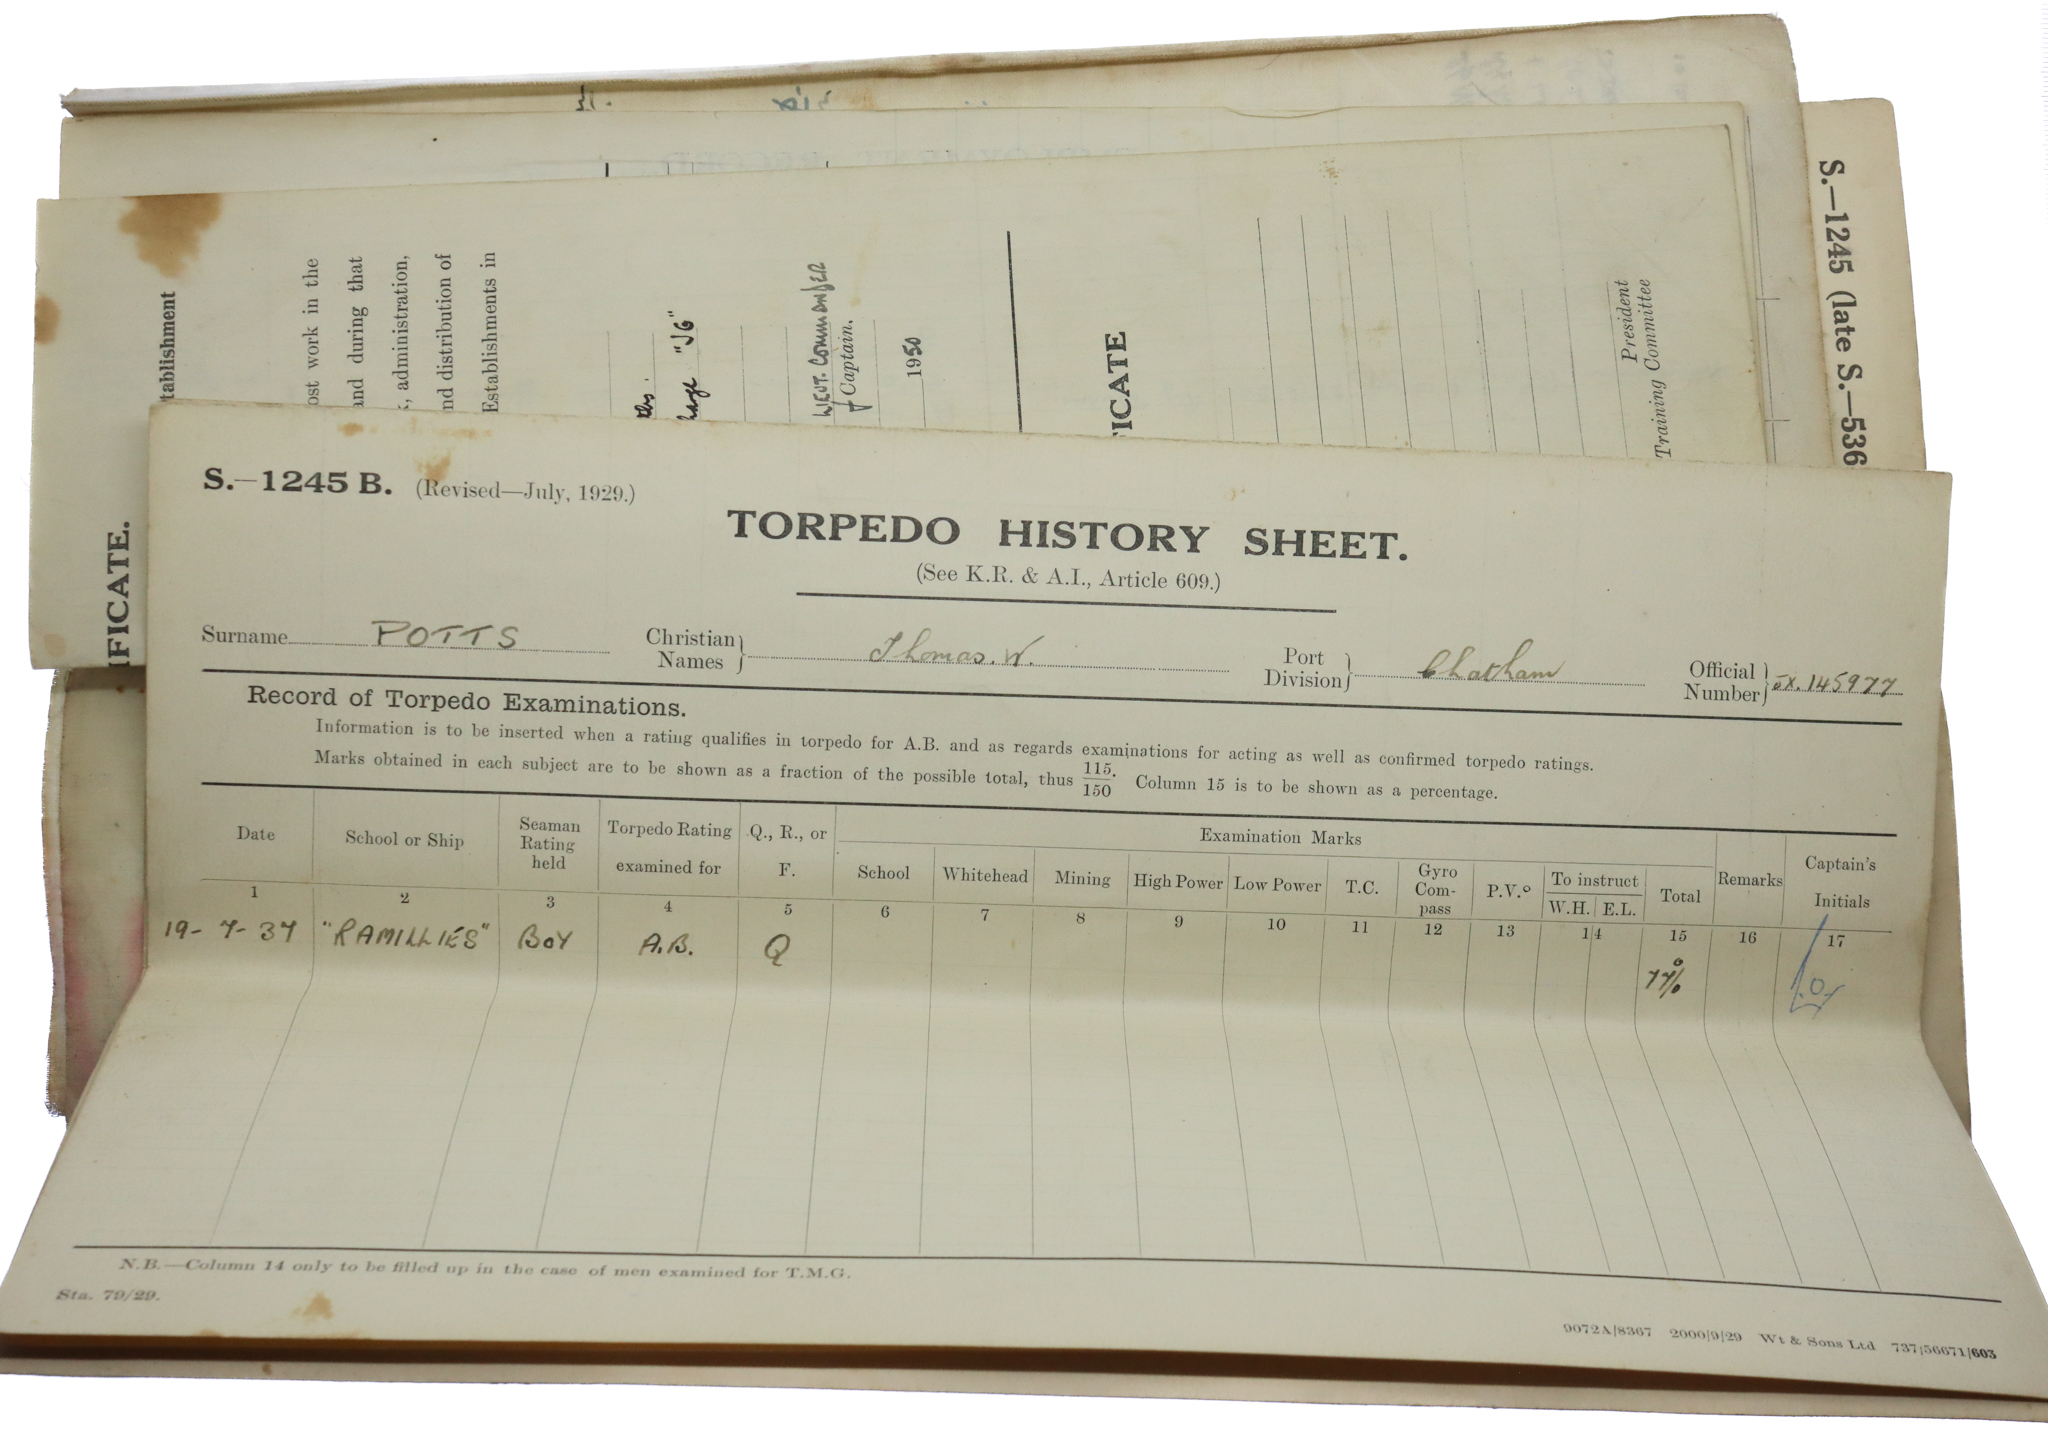 S.—1245 (late S.—536
tablishment
ost work in the
and during that
, administration,
nd distribution of
Establishments in
this.
"JG"
LIEUT. COMMANDER
Captain.
1950
FICATE
President
Training Committee
IFICATE.
S.—1245 B. (Revised—July, 1929.)
TORPEDO HISTORY SHEET.
(See K.R. & A.I., Article 609.)
Surname POTTS Christian Names Thomas. W. Port Division Chatham Official Number JX. 145977
Record of Torpedo Examinations.
Information is to be inserted when a rating qualifies in torpedo for A.B. and as regards examinations for acting as well as confirmed torpedo ratings.
Marks obtained in each subject are to be shown as a fraction of the possible total, thus 115/150. Column 15 is to be shown as a percentage.
Date School or Ship Seaman Rating held Torpedo Rating examined for Q., R., or F. Examination Marks Remarks Captain's Initials
School Whitehead Mining High Power Low Power T.C. Gyro Com-pass P.V.º To instruct W.H. E.L. Total
1 2 3 4 5 6 7 8 9 10 11 12 13 14 15 16 17
19-7-37 "RAMILLIES" BOY A.B. Q 77%
N.B.—Column 14 only to be filled up in the case of men examined for T.M.G.
Sta. 79/29.
9072A/8367 2000/9/29 Wt & Sons Ltd 737/56671/603